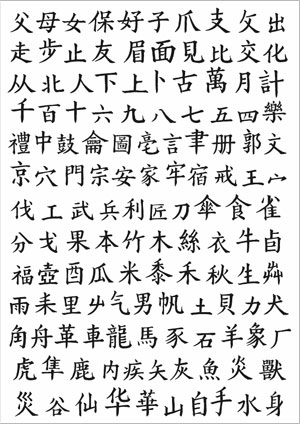 父母女保好子爪支攵出
走步止友眉面見比交化
从北人下上卜古萬月計
千百十六九八七五四樂
禮中鼓龠圖亳言聿册郭文
京穴門宗安家牢宿戒王宀
伐工武兵利匠刀傘食雀
分戈果本竹木絲衣牛卣
福壺酉瓜米黍禾秋生艸
雨耒里屮气男帆土貝力犬
角舟革車龍馬豕石羊象厂
虎隼鹿内疾矢灰魚炎獸
災谷仙华華山自手水身